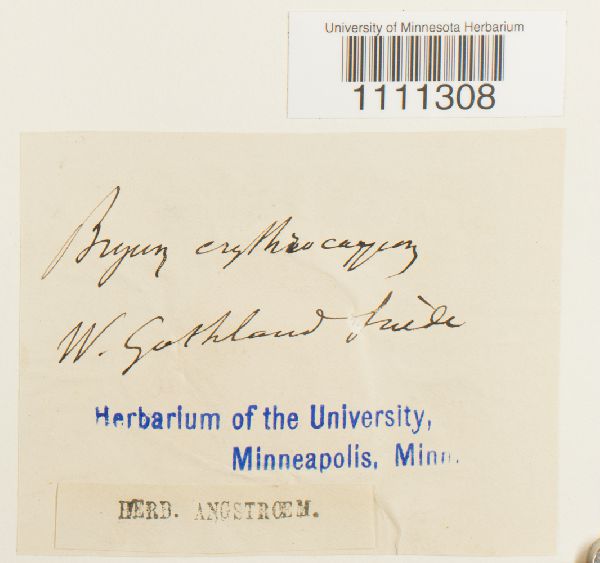 University of Minnesota Herbarium
1111308
Bryum erythrocarpon
W. Gothland Suède
Herbarium of the University,
Minneapolis, Minn.
HERB. ANGSTRŒM.